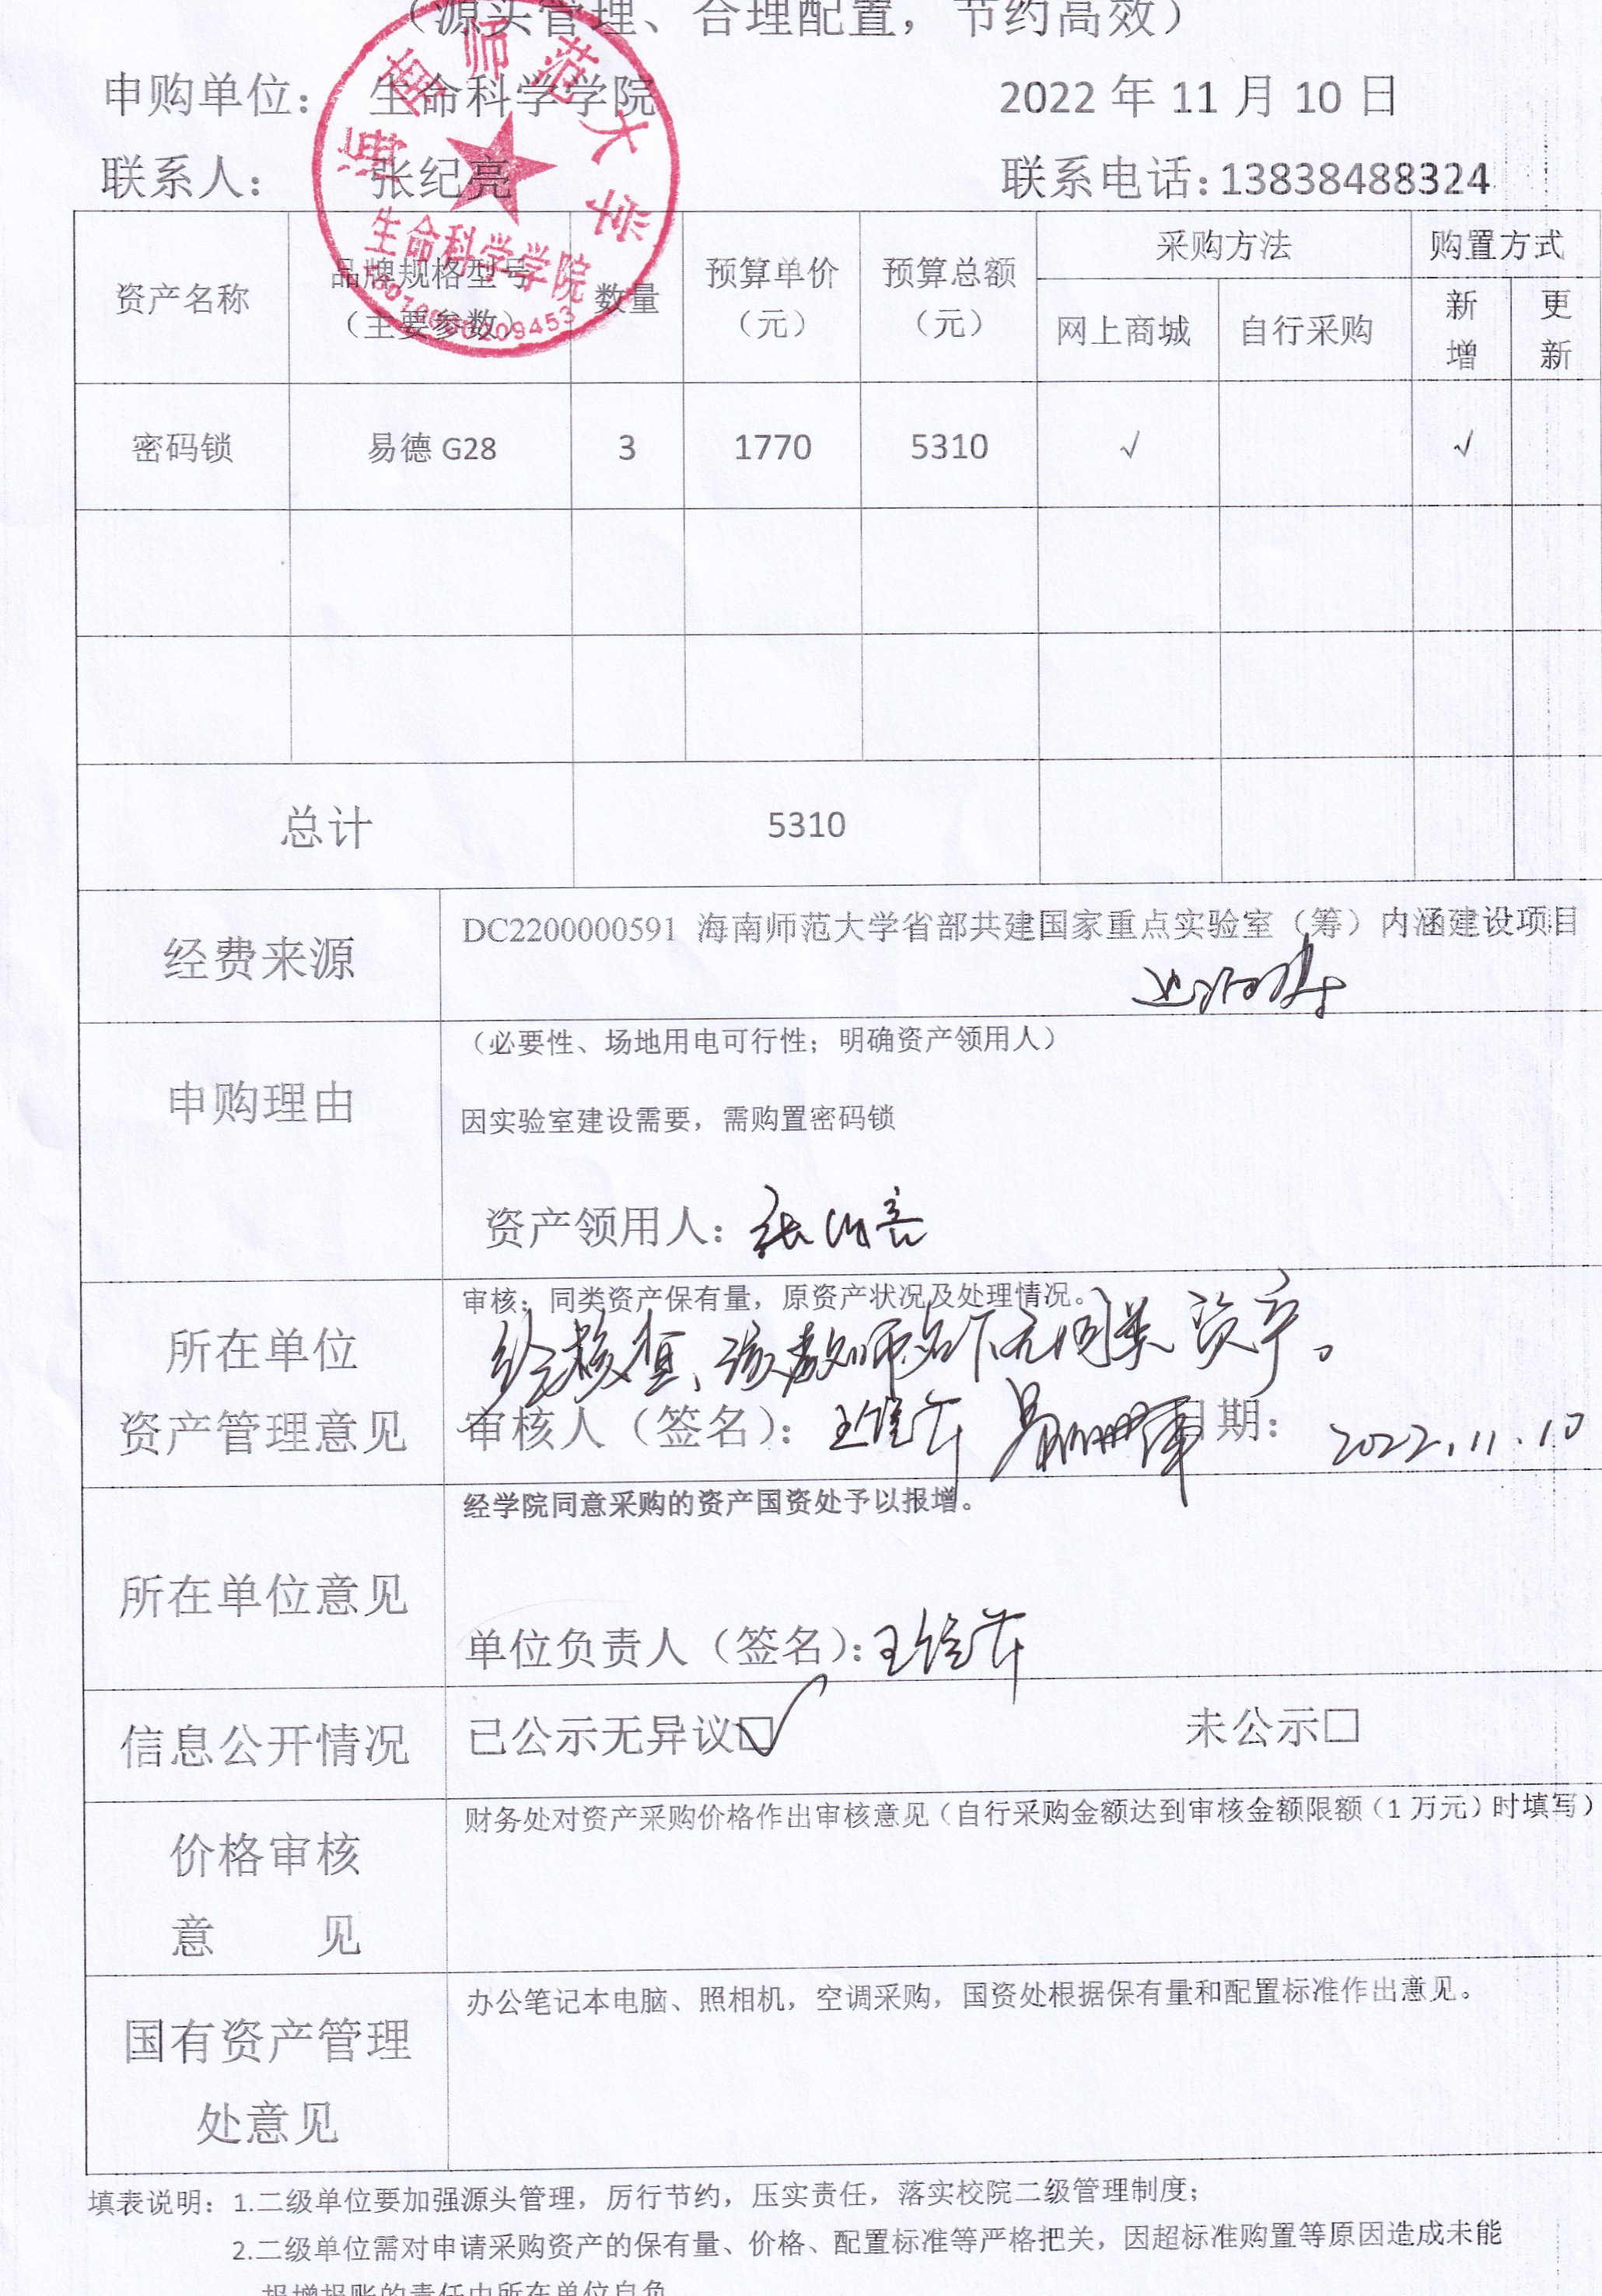 （源头管理、合理配置，节约高效）
申购单位： 生命科学学院 2022 年 11 月 10 日
联系人： 张纪亮 联系电话：13838488324
海南师范大学
生命科学学院
资产名称 品牌规格型号（主要参数） 数量 预算单价（元） 预算总额（元） 采购方法 购置方式
网上商城 自行采购 新增 更新
密码锁 易德 G28 3 1770 5310 √ √
总计 5310
经费来源 DC2200000591 海南师范大学省部共建国家重点实验室（筹）内涵建设项目
申购理由 （必要性、场地用电可行性；明确资产领用人）
因实验室建设需要，需购置密码锁
资产领用人：张纪亮
所在单位资产管理意见 审核：同类资产保有量，原资产状况及处理情况。
经核查、该教师名下无同类资产。
审核人（签名）： 日期： 2022.11.10
所在单位意见 经学院同意采购的资产国资处予以报增。
单位负责人（签名）：
信息公开情况 已公示无异议☑ 未公示□
价格审核意 见 财务处对资产采购价格作出审核意见（自行采购金额达到审核金额限额（1 万元）时填写）
国有资产管理处意见 办公笔记本电脑、照相机，空调采购，国资处根据保有量和配置标准作出意见。
填表说明：1.二级单位要加强源头管理，厉行节约，压实责任，落实校院二级管理制度；
2.二级单位需对申请采购资产的保有量、价格、配置标准等严格把关，因超标准购置等原因造成未能
报增报账的责任由所在单位自负